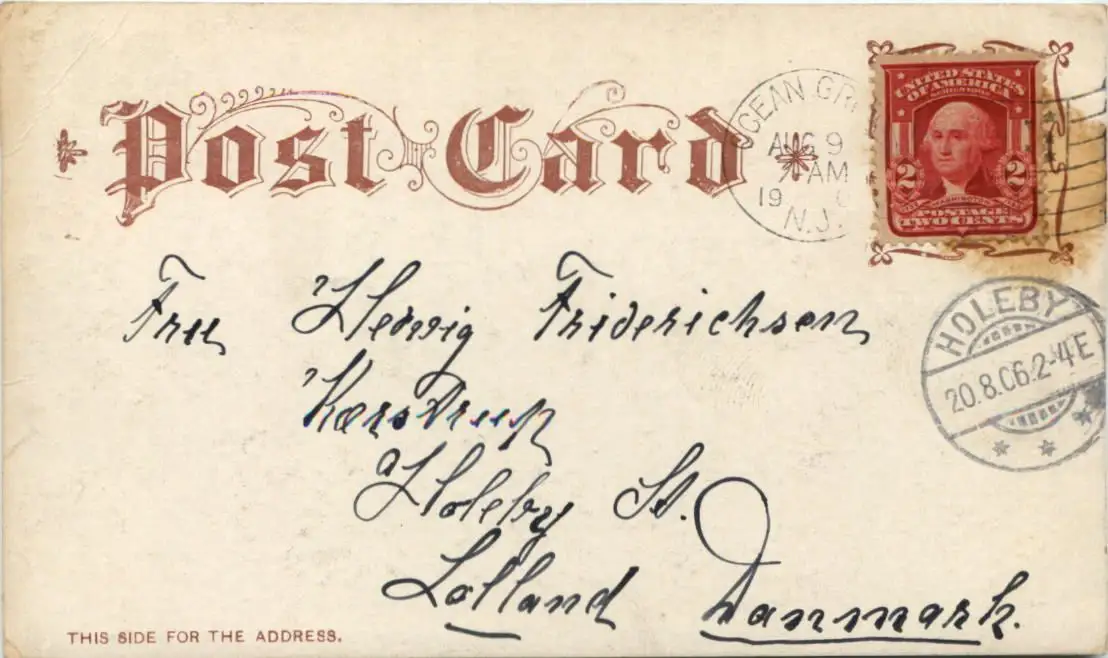 Post Card
OCEAN GR
AUG 9
AM
19
N.J.
UNITED STATES
OF AMERICA
2 2
WASHINGTON
POSTAGE
TWO CENTS
HOLEBY
20.8.06.2-4E
Fru Hedvig Friderichsen
Kærstrup
Holeby St.
Lolland Danmark.
THIS SIDE FOR THE ADDRESS.